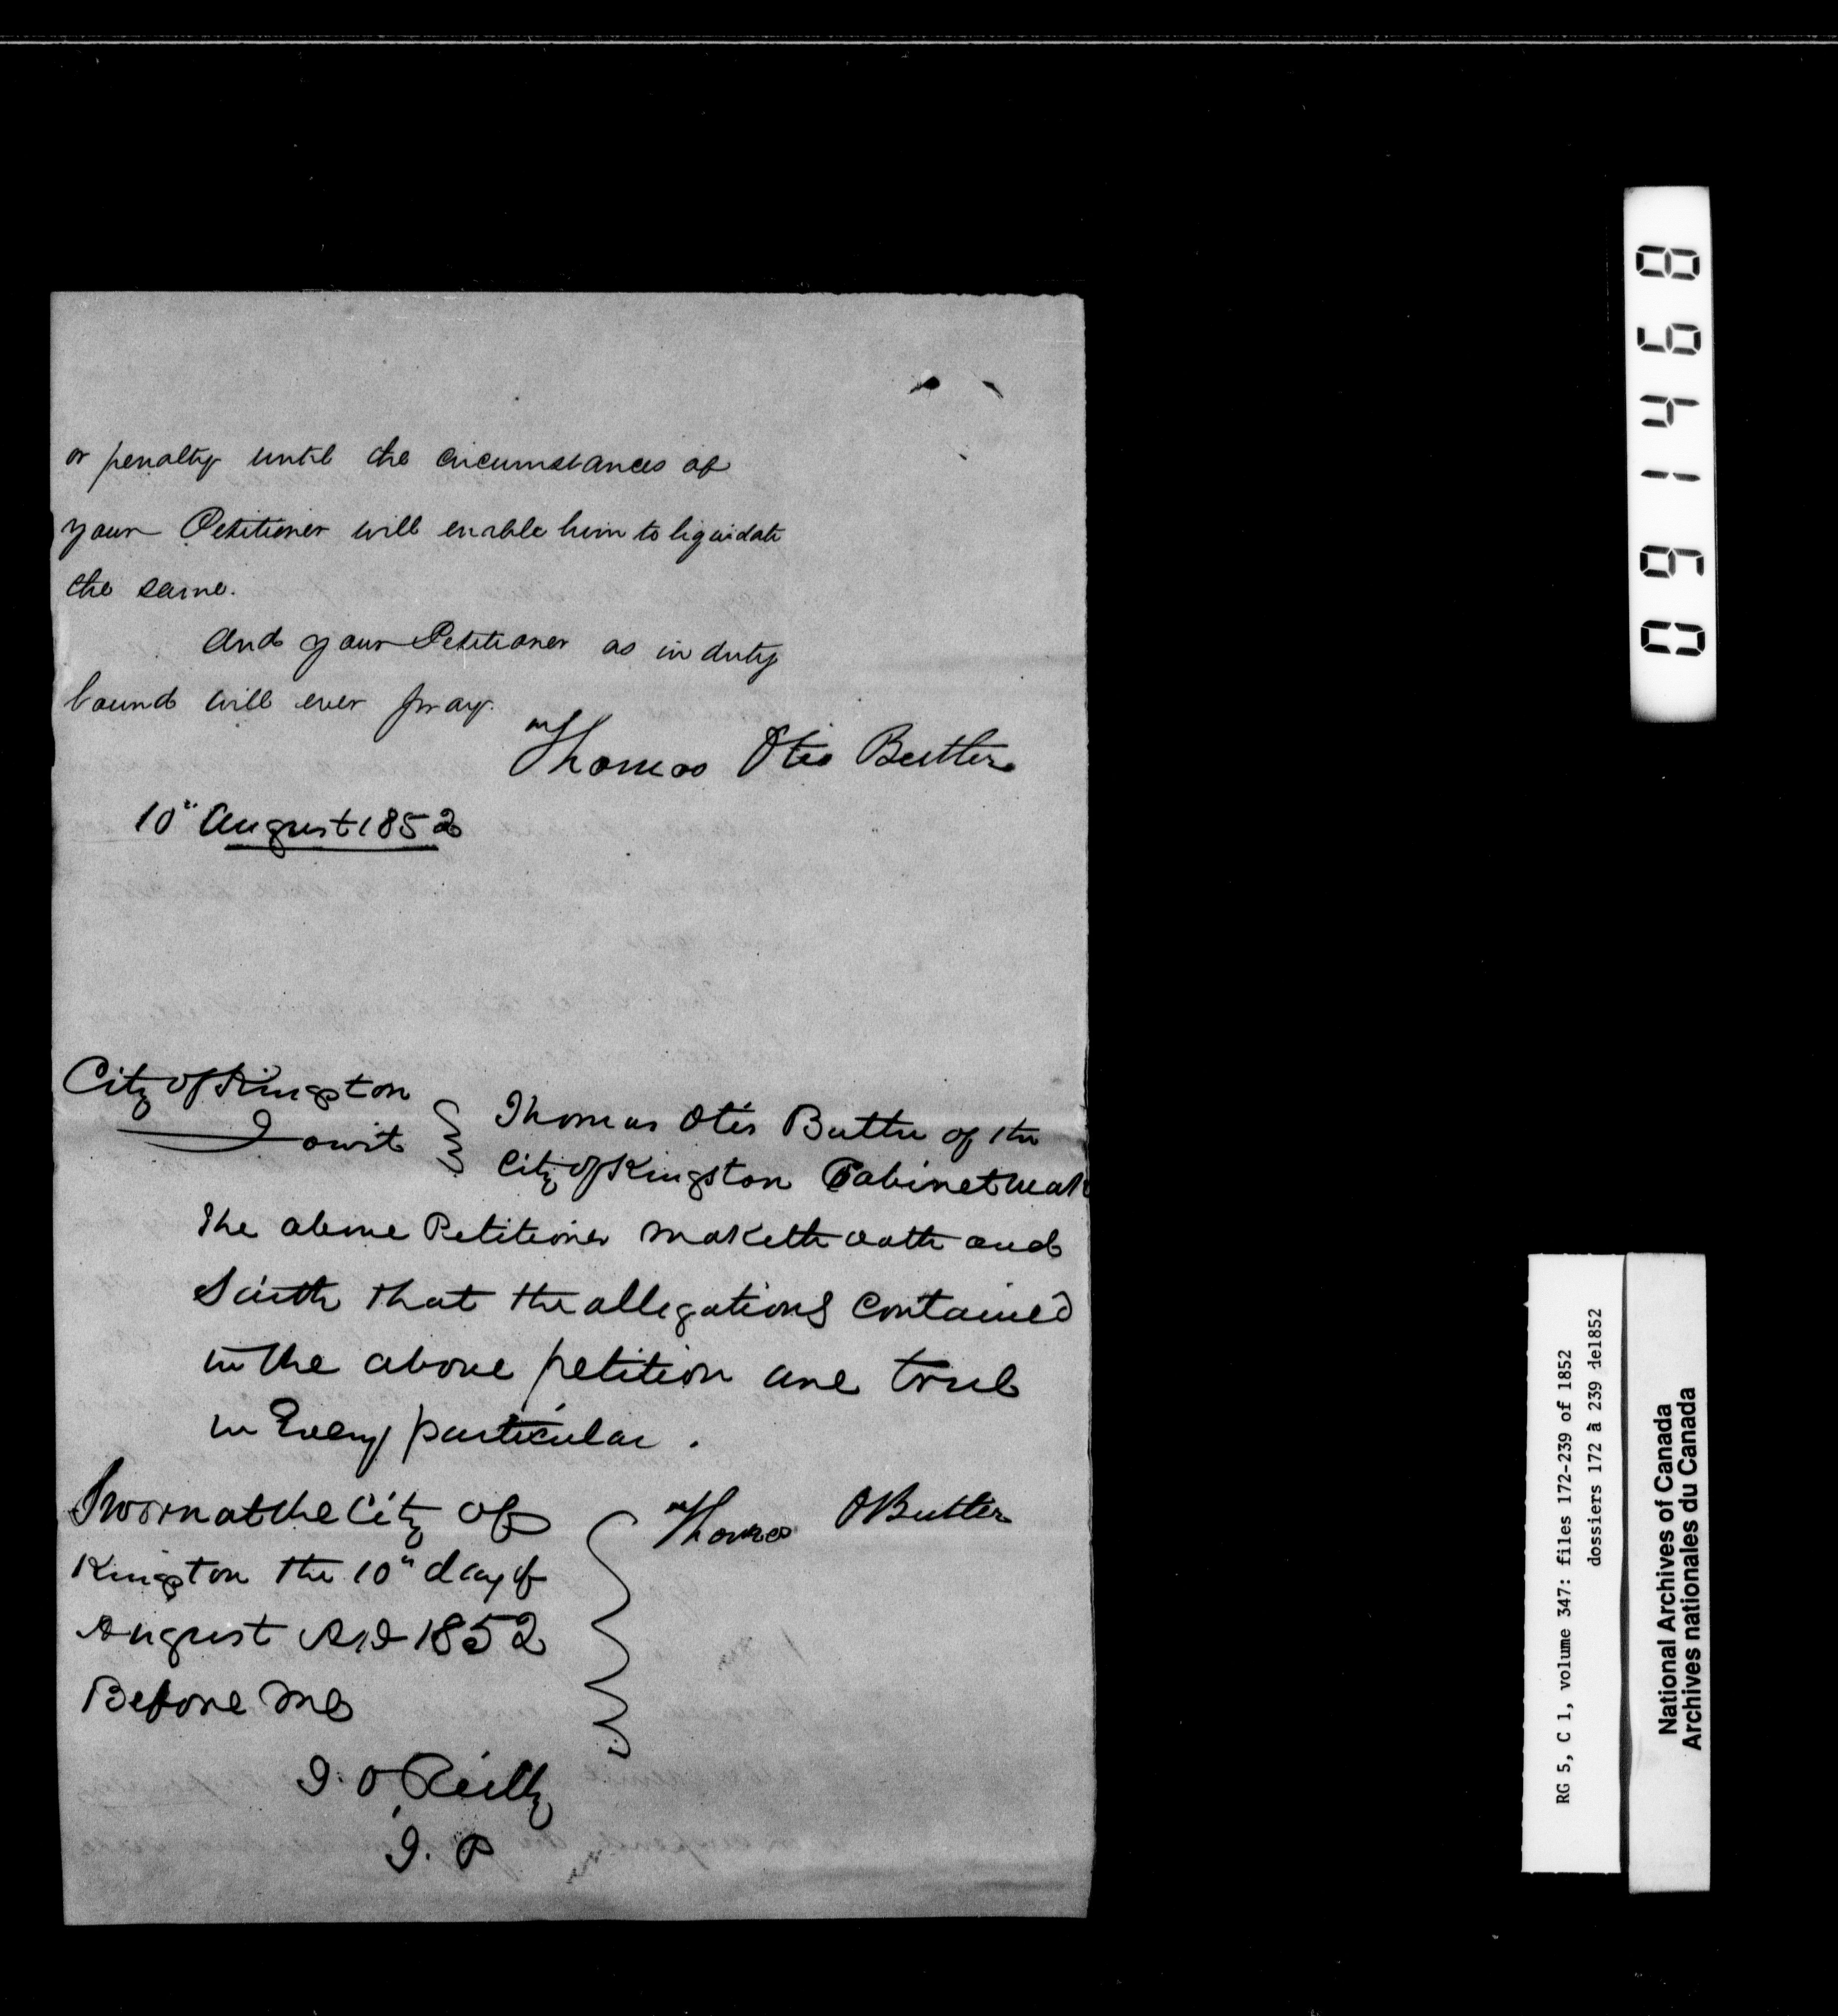 or penalty until the circumstances of
your Petitioner will enable him to liquidate
the same.
And your Petitioner as in duty
bound will ever pray.
Thomas Otis Butler
10" August 1852
City of Kingston
Towit
Thomas Otis Butler of the
City of Kingston Cabinetmak
the above Petitioner maketh oath and
Saith that the allegations Contained
in the above petition are true
in Every particular.
Sworn at the City of
Kingston the 10" day of
August AD 1852
Before me
Thomas O Butler
J. O'Reilly
J. P
091468
RG 5, C 1, volume 347: files 172-239 of 1852
dossiers 172 à 239 de1852
National Archives of Canada
Archives nationales du Canada